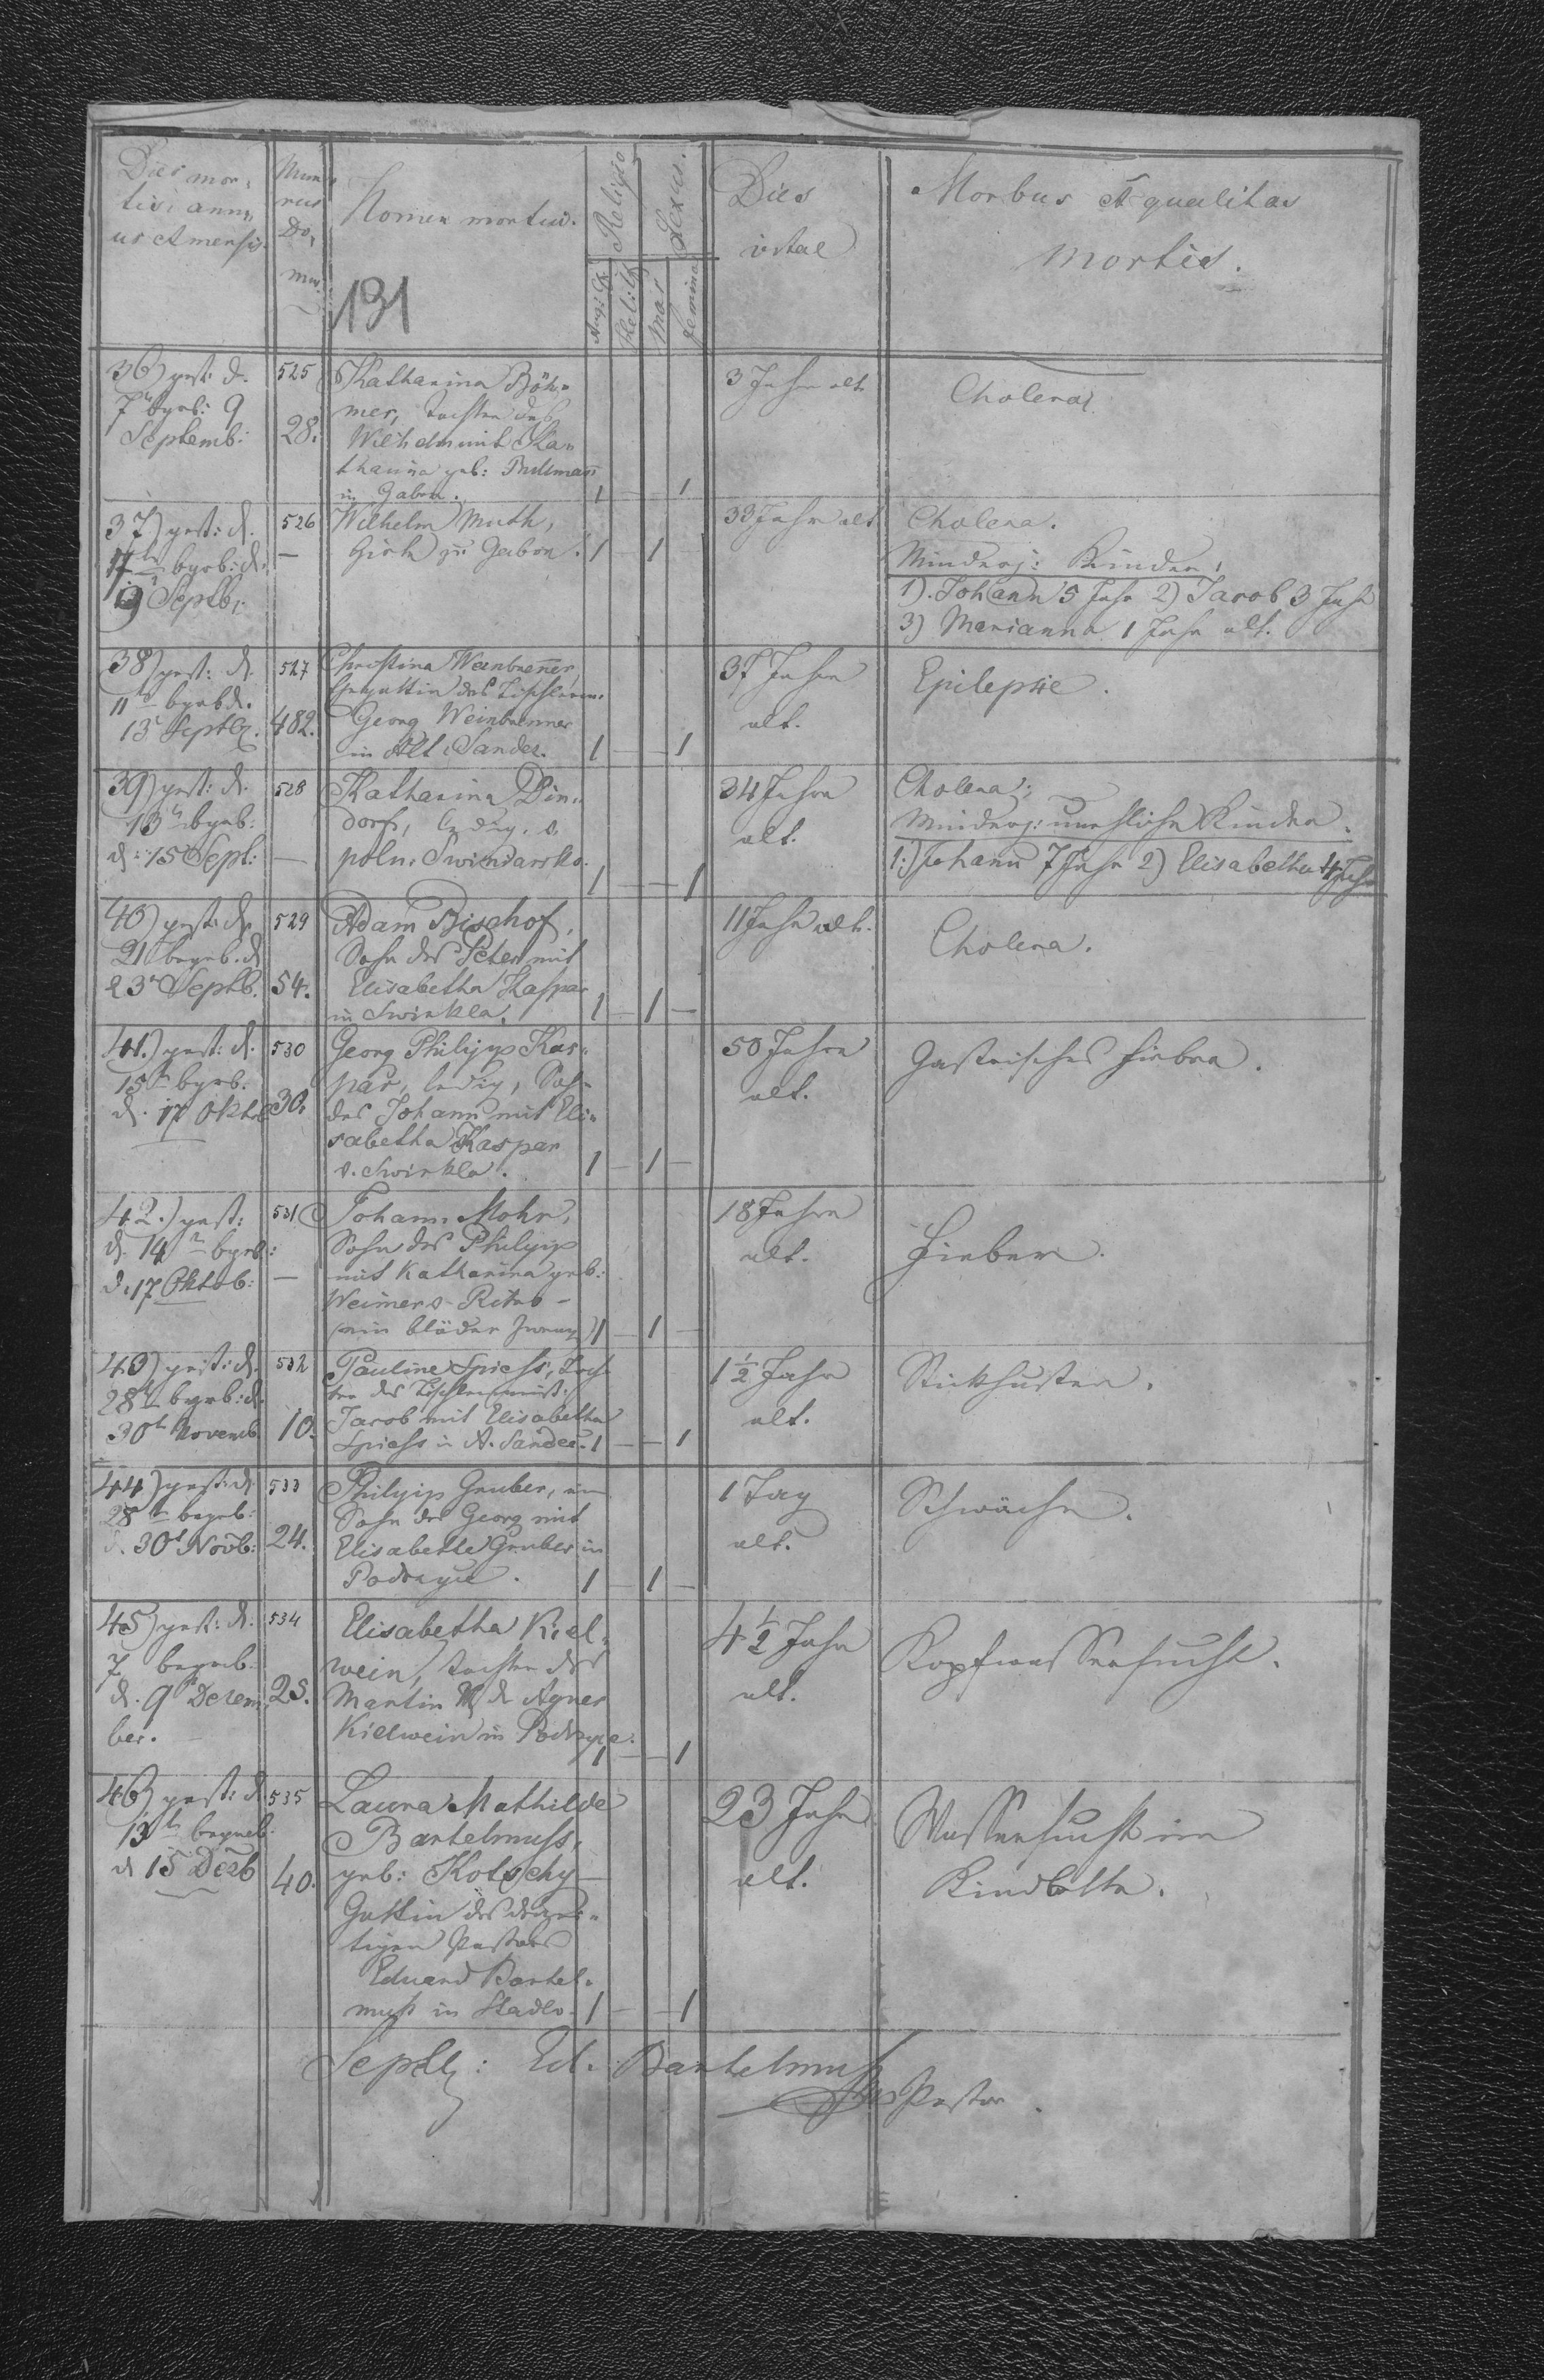 Dies mor-
tis, ann-
us et mensis.
Nume-
rus
Do-
mus.
Nomen mortui.
131
Religio
Sexus.
Aug: C.
Helv: C.
Mas
Femina
Dies
vitae
Morbus et qualitas
mortis.
36) gest: d.
7t begrb: 9
Septemb:
525
28.
Katharina Böh-
mer, Tochter des
Wilhelm mit Ka-
tharina geb:
in Gabon.
1 — 1
3 Jahre alt.
Cholera.
37) gest: d.
17t begrb: d.
19 Septb:
526
—
Wilhelm Muth,
Wirth zu Gabon.
1 — 1 —
33 Jahre alt
Cholera.
Minderj: Kinder:
1). Johann 5 Jahr 2) Jacob 3 Jahr
3) Marianna 1 Jahr alt.
38) gest: d.
11t begrb d.
13t Septb.
527
482.
Christina Weinbrenner,
Ehegattin des Tischlerm.
Georg Weinbrenner
in Alt Sandez.
1 — — 1
37 Jahre
alt.
Epilepsie.
39) gest: d.
13t begrb:
d. 15 Sept:
528
—
Katharina Din-
dorf, ledig, v.
poln: Swiniarsko.
1 — — 1
34 Jahre
alt.
Cholera;
Minderj: unehliche Kinder.
1.) Johann 7 Jahr 2) Elisabetha 4 Jahr
40) gest: d.
21 begrb. d
23t Septb.
529
54.
Adam Bischof,
Sohn des Peter mit
Elisabetha Kaspar
in Swirkla.
1 — 1 —
11 Jahr alt.
Cholera.
41.) gest: d.
15t begrb.
d. 17 Oktob
530
30.
Georg Philipp Kas-
par, ledig, Sohn
des Johann mit Eli-
sabetha Kaspar
v. Swirkla.
1 — 1 —
50 Jahre
alt.
Gastrisches Fieber.
42.) gest:
d. 14t begrb:
d. 17 Oktob:
531
—
Johann Mohr,
Sohn des Philipp
mit Katharina geb:
Weimer v. Ritro –
(ein blöder Zwerg)
1 — 1 —
18 Jahre
alt.
Fieber.
43) gest: d.
28t begrb: d.
30t Novemb.
532
10.
Pauline Spiess, Toch-
ter des Tischlermeist:
Jacob mit Elisabetha
Spiess in A. Sandez.
1 — — 1
1 1/2 Jahr
alt.
Stickhusten.
44) gest: d.
28t begrb:
d. 30t Novb:
533
24.
Philipp Gruber, ein
Sohn des Georg mit
Elisabetha Gruber in
Podrzyce.
1 — 1 —
1 Tag
alt.
Schwäche.
45) gest: d:
7 begrb:
d. 9t Dezem-
ber.
534
25.
Elisabetha Kiel-
wein, Tochter des
Martin & der Agnes
Kielwein in Podrzyce.
1 — — 1
4 1/2 Jahr
alt.
Kopfwassersucht.
46) gest: d.
13t begrb.
d 15 Dezb
535
40.
Laura Mathilde
Bartelmuss,
geb: Kotschy
Gattin des derzei-
tigen Pastors
Eduard Bartel-
muß in Stadlo.
1 — — 1
23 Jahr
alt.
Wassersucht im
Kindbette.
Ed. Bartelmuß
Pastor.